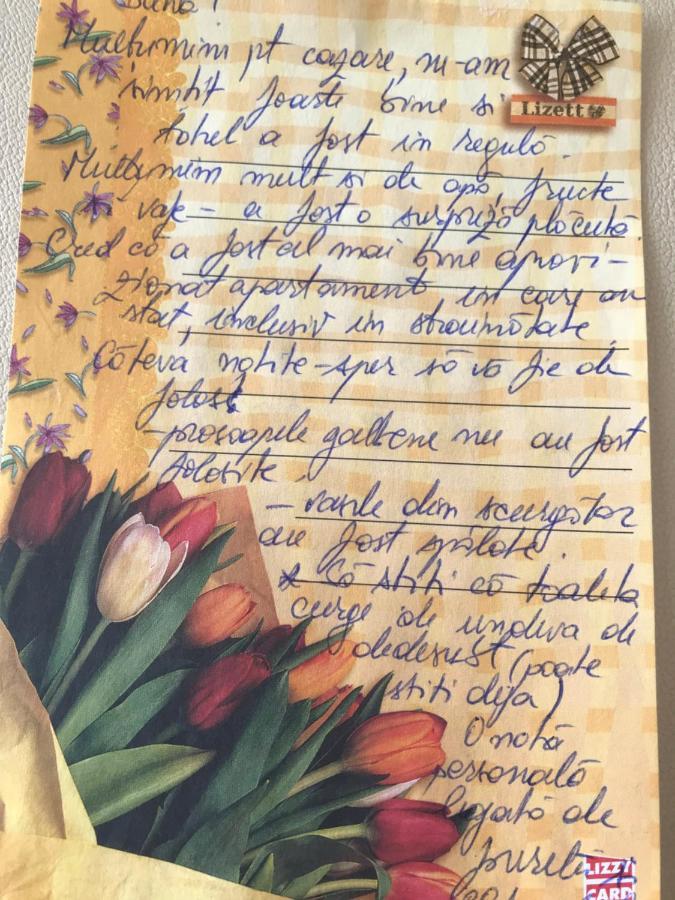 Bună!
Multumim pt cazare, ni-am
Lizett
simtit foarte bine si
totul a fost in regulă.
Multumim mult si de apă, fructe
- a fost o surpriză plăcută.
Cred că a fost cel mai bine aprovi-
zionat apartament in care am
stat, inclusiv in străinătate.
Câteva notite - sper să vă fie de
folos:
- prosoapele galbene nu au fost
folosite.
- vasele din scurgător
au fost spălate.
Că stiti că toaleta
curge de undeva de
dedesubt (poate
stiti deja)
O notă
personală
legată de
LIZZY
CARD